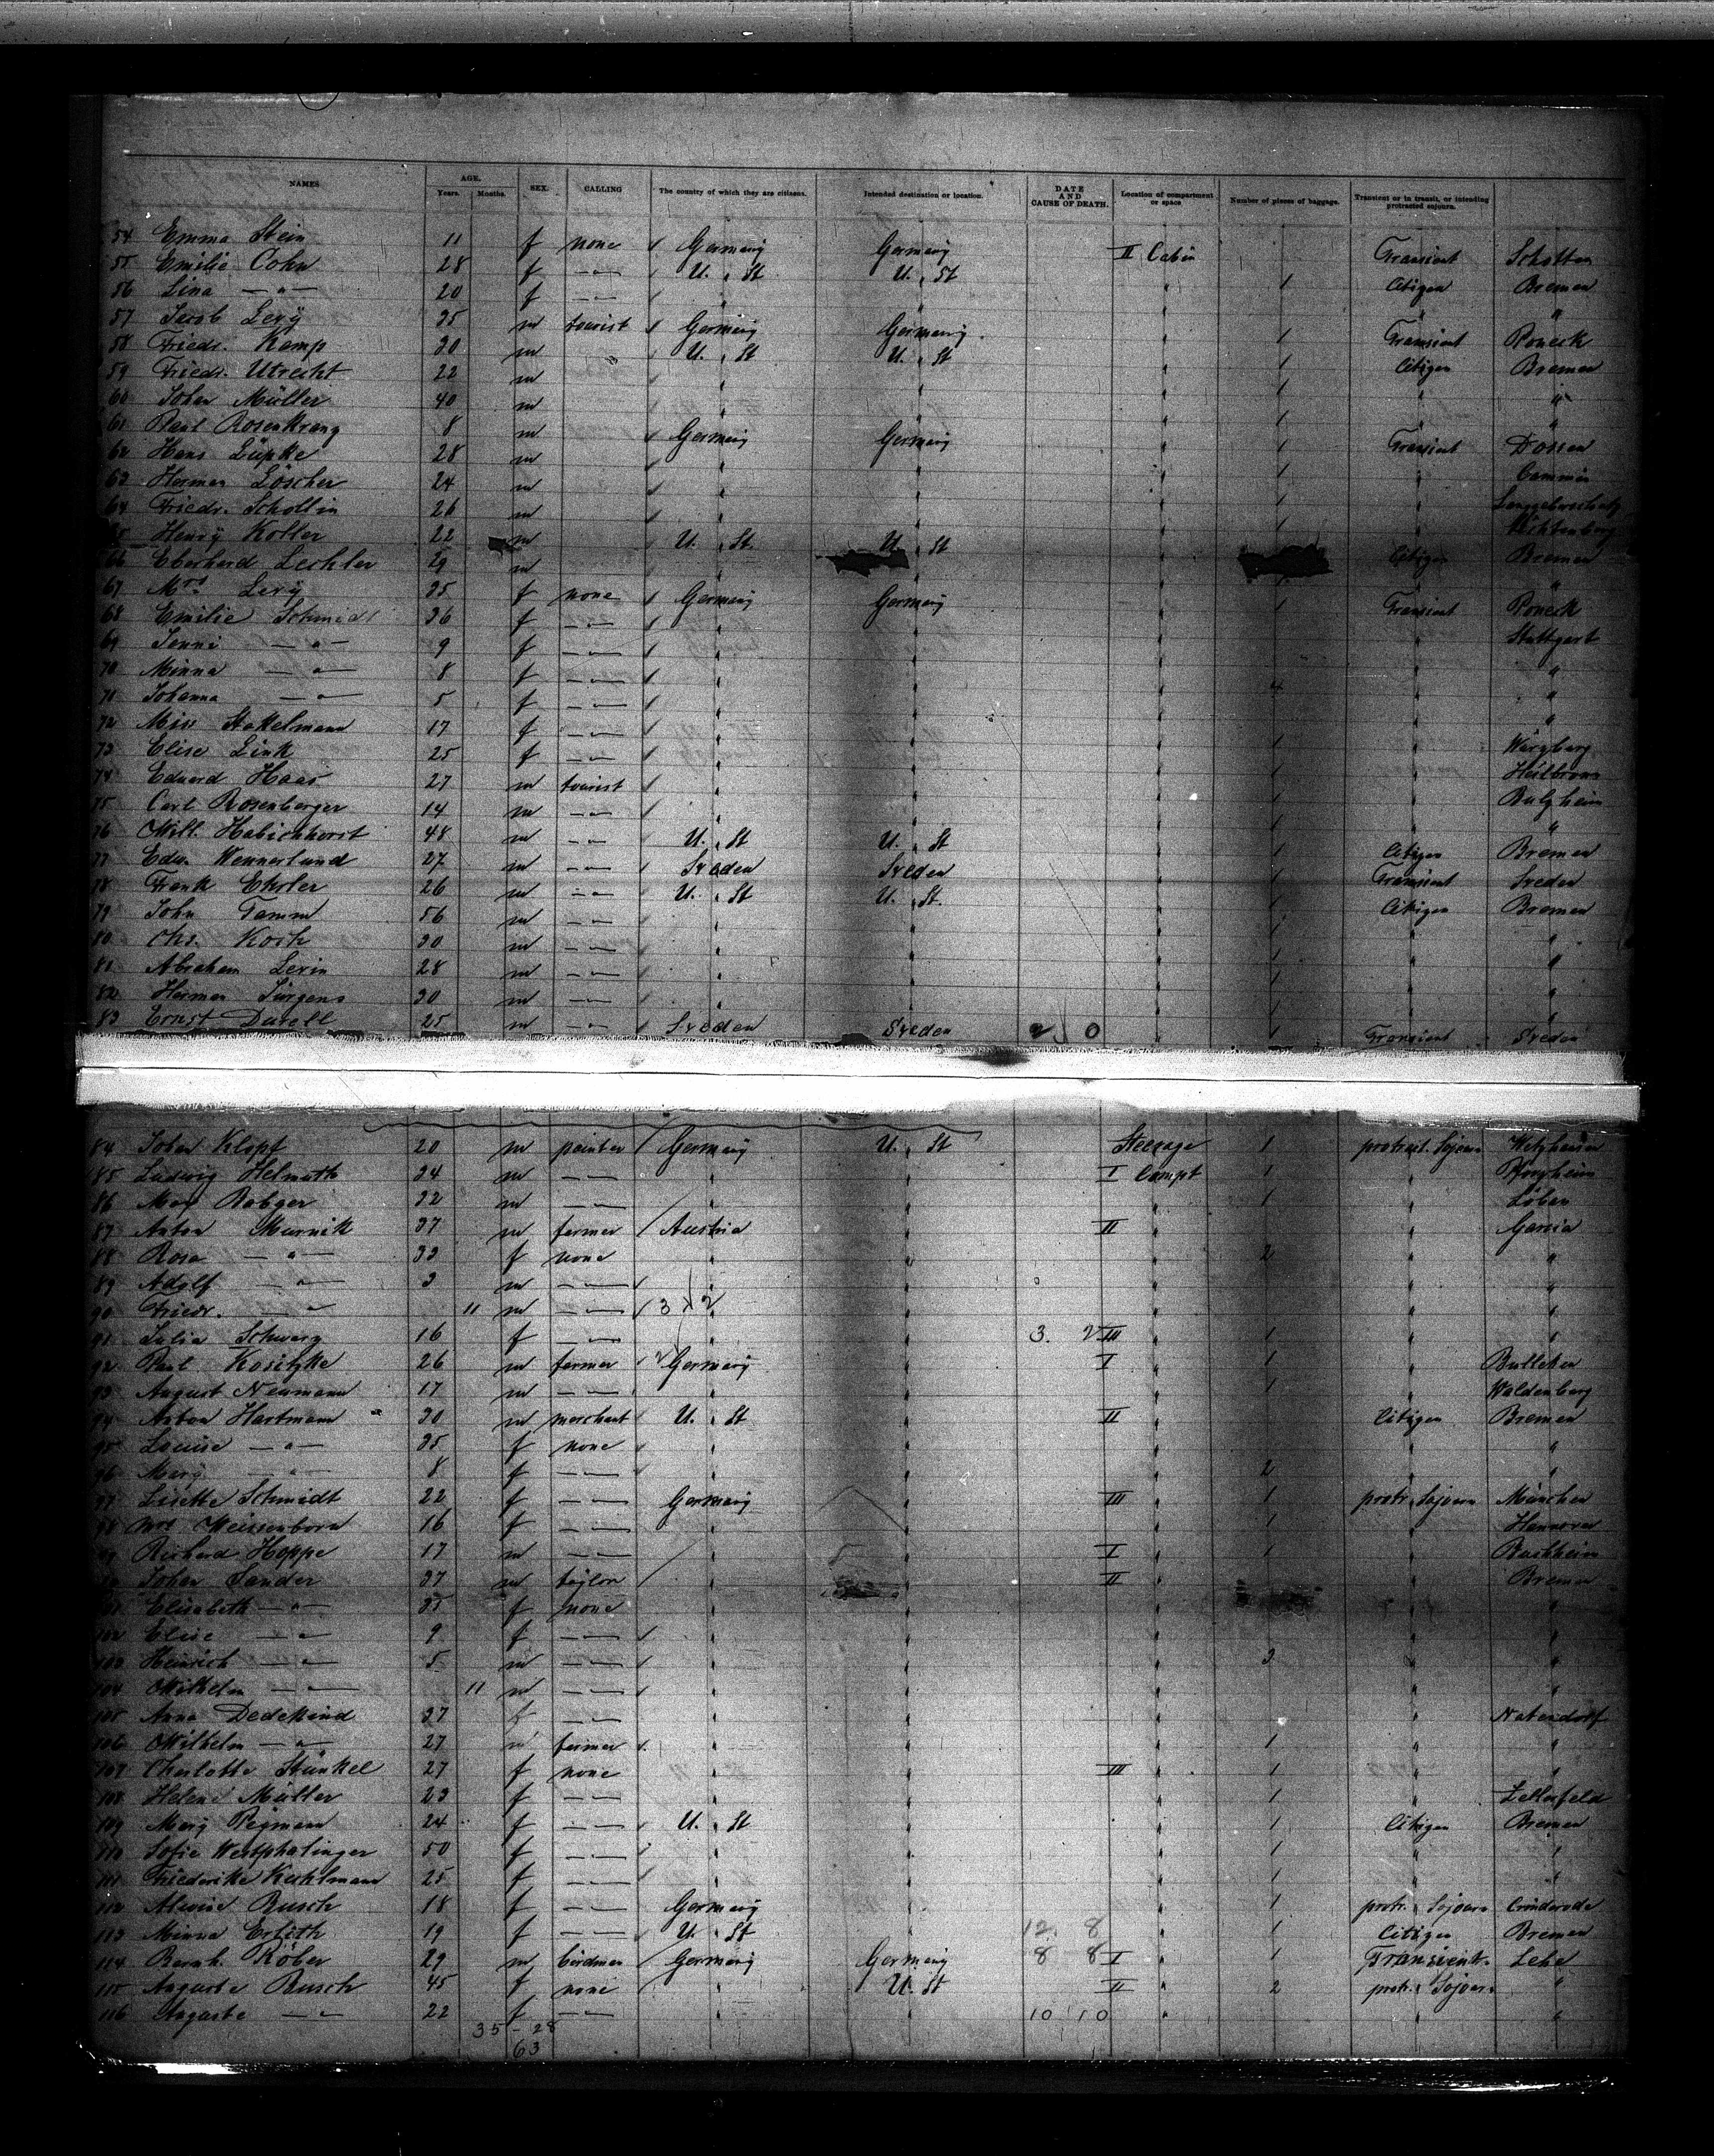 NAMES AGE. Years. Months. SEX. CALLING The country of which they are citizens. Intended destination or location. DATE AND CAUSE OF DEATH. Location of compartment or space Number of pieces of baggage. Transient or in transit, or intending protracted sojourn.
54 Emma Stein 11 f none Germany Germany II Cabin Transient Schotten
55 Emilie Cohn 28 f —"— U. St U. St 1 Citizen Bremen
56 Lina —"— 20 f —"— " " " " "
57 Jacob Levy 35 m tourist Germany Germany 1 Transient Roneck
58 Friedr. Kamp 30 m U. St U. St 1 Citizen Bremen
59 Friedr. Utrecht 22 m 1 "
60 Johan Müller 40 m 1 "
61 Paul Rosenkranz 8 m Germany Germany Transient Dossen
62 Hans Lüpke 28 m 1 Cammin
63 Herman Löscher 24 m 1
64 Friedr. Schollin 26 m 1 Lichtenberg
65 Henry Koller 22 m U. St. U. St Citizen Bremen
66 Eberherd Lechler 19 m "
67 Mrs Levy 35 f none Germany Germany 1 Transient Roneck
68 Emilie Schmidt 36 f —"— Stuttgart
69 Jenni —"— 9 f —"— "
70 Minna —"— 8 f —"— 4 "
71 Johanna —"— 5 f —"— "
72 Miss Hakelmann 17 f —"— 1 Würzburg
73 Elise Link 25 f —"— 1 Heilbronn
74 Eduard Haas 27 m tourist 1 Bulzheim
75 Carl Rosenberger 14 m —"— 1 "
76 Will. Habichhorst 48 m —"— U. St U. St 1 Citizen Bremen
77 Edw. Wennerlund 27 m —"— Sveden Sveden 1 Transient Sveden
78 Frank Ehrler 26 m —"— U. St U. St. 1 Citizen Bremen
79 John Tamm 56 m —"— 1 "
80 Chs. Koch 30 m —"— 1 "
81 Abraham Levin 28 m —"— 1 "
82 Herman Jürgens 30 m —"— 1 "
83 Ernst Durell 25 m —"— Sveden Sveden 1 Transient Sveden
84 Johan Klopf 20 m painter Germany U. St Steerage 1 protract. Sojourn Welzheim
85 Ludwig Helmuth 24 m —"— I Compt 1 Pforzheim
86 Max Babger 22 m —"— 1 Löbau
87 Anton Murnik 37 m farmer Austria II Garcia
88 Rosa —"— 33 f none 2 "
89 Adolf —"— 3 m —"— "
90 Friedr. —"— 11 m —"— 3 2 "
91 Julia Schwarz 16 f —"— 3. 2 III 1 "
92 Paul Kositzke 26 m farmer Germany I 1 Bulleken
93 August Neumann 17 m —"— 1 Waldenberg
94 Anton Hartmann 30 m merchant U. St II Citizen Bremen
95 Louise —"— 35 f none "
96 Mary —"— 8 f —"— 2 "
97 Lisette Schmidt 22 f —"— Germany III 1 protr. Sojourn München
98 Mrs Weissenborn 16 f —"— 1 Hannover
99 Richard Hoppe 17 m —"— I 1 Buchheim
Johan Sander 37 m taylor II Bremen
101 Elisabeth —"— 35 f none "
102 Elise —"— 9 f —"— "
103 Heinrich —"— 5 m —"— 3 "
104 Wilhelm —"— 11 m —"— "
105 Anna Dedekind 37 f —"— Natendorf
106 Wilhelm —"— 27 m farmer 1 "
107 Charlotte Stünkel 27 f none III 1 "
108 Helene Müller 23 f —"— 1 Zellerfeld
109 Mary Regmann 24 f —"— U. St 1 Citizen Bremen
110 Sofie Westphalinger 50 f —"— 1 "
111 Friederike Kuhlmann 25 f —"— 1 "
112 Alwine Busch 18 f —"— Germany 1 protr. Sojourn
113 Minna Erlith 19 f —"— U. St 12. 8 1 Citizen Bremen
114 Bernh. Röber 29 m Germany Germany 8 8 I 1 Transient. Lehe
115 Auguste Busch 45 f none U. St II 2 protr. Sojourn "
116 Auguste —"— 22 f —"— 10 10 "
35 - 28
63